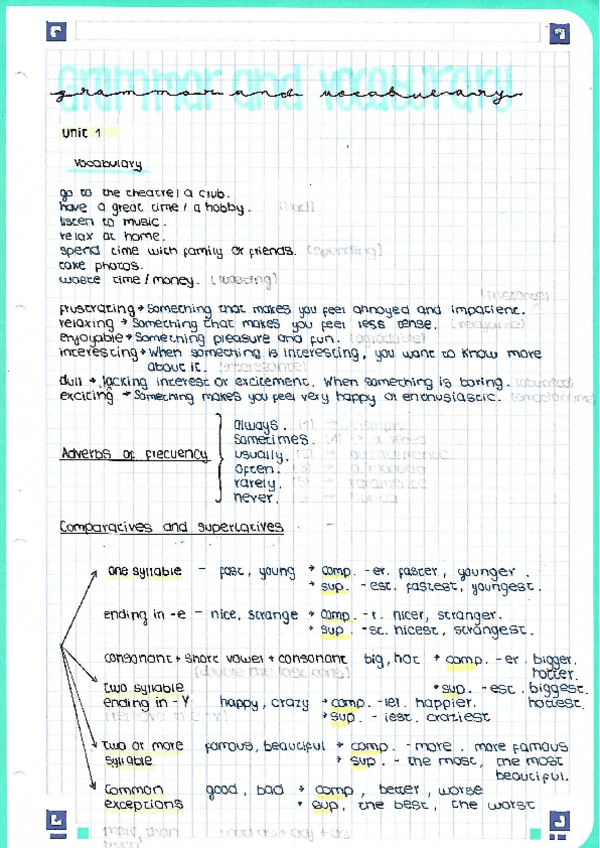 grammar and vocabulary
grammar and vocabulary
Unit 1
vocabulary
go to the theatre / a club.
have a great time / a hobby. (had)
listen to music.
relax at home.
spend time with family or friends. (spending)
take photos.
waste time / money. (wasting)
frustrating → Something that makes you feel annoyed and impacient.
relaxing → Something that makes you feel less tense. (relajante)
enjoyable → Something pleasure and fun. (agradable)
interesting → When something is interesting, you want to know more
about it. (interesante)
dull → lacking interest or excitement. When something is boring. (aburrido)
exciting → Something makes you feel very happy or enthusiastic. (emocionante)
Adverbs of frecuency
always. (1) → siempre
Sometimes. (4) → a veces
usually. (2) → normalmente
Often. (3) → a menudo
rarely. (5) → raramente
never. → nunca
Comparatives and superlatives
one syllable – fast, young → comp. -er. faster, younger.
→ sup. - est. fastest, youngest.
ending in -e – nice, strange → comp. - r. nicer, stranger.
→ sup. - st. nicest, strangest.
consonant + short vowel + consonant big, hot → comp. - er. bigger.
hotter.
→ sup. - est. biggest.
hottest.
two syllable
ending in -Y happy, crazy → comp. - iel. happier.
→ sup. - iest. craziest
two or more famous, beautiful → comp. - more. more famous
syllable → sup. - the most, the most
beautiful.
Common good, bad → comp, better, worse
exceptions → sup, the best, the worst
more, than